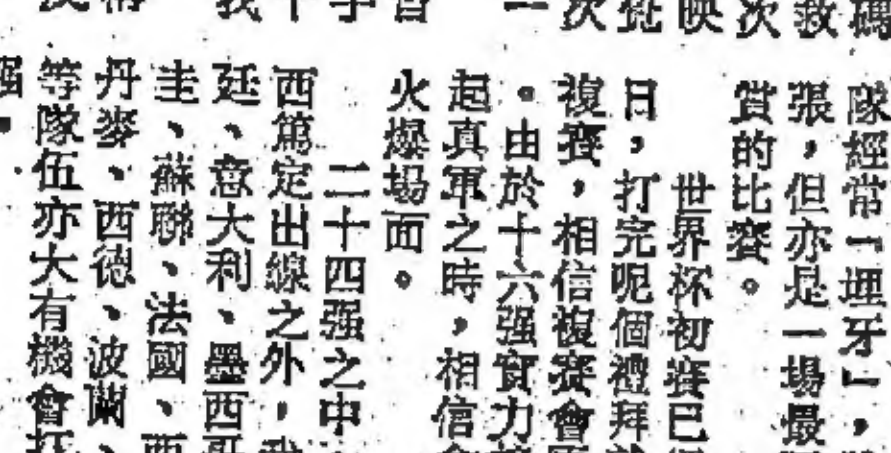 碼
救
次
映
覺
次
一
隊經常「埋牙」，
張，但亦是一場最
賞的比賽。
世界杯初賽已
日，打完呢個禮拜
複賽，相信複賽會
。由於十六强實力
起真軍之時，相信
火爆場面。
二十四强之中
西篤定出線之外，
廷、意大利、墨西哥
圭、蘇聯、法國、西
丹麥、西德、波蘭、
等隊伍亦大有機會打